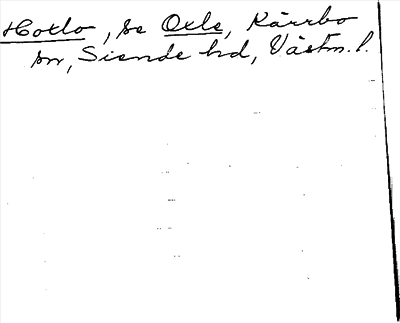 Hoxlo, se Oxle, Kärrbo
sn, Siende hd, Västm. l.